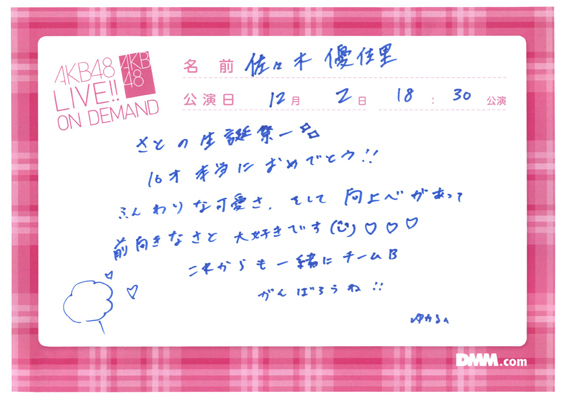 AKB48
LIVE!!
ON DEMAND
AKB
48
名 前 佐々木 優佳里
公演日 12月 2日 18:30公演
さとの生誕祭ー
16才本当におめでとう!!
ふんわりな可愛さ、そして向上心があって
前向きなさと大好きです(¨)♡♡♡
これからも一緒にチームB
がんばろうね!!
ゆかるん
DMM.com